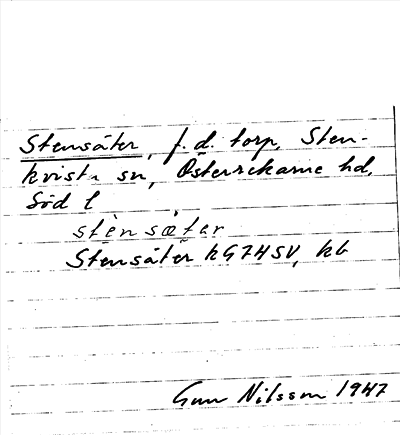 Stensäter, f. d. torp, Sten-
kvista sn, Österrekarne hd,
Söd l
stènsæ̀tər
Stensäter hG7HSV, kb
Gun Nilsson 1947